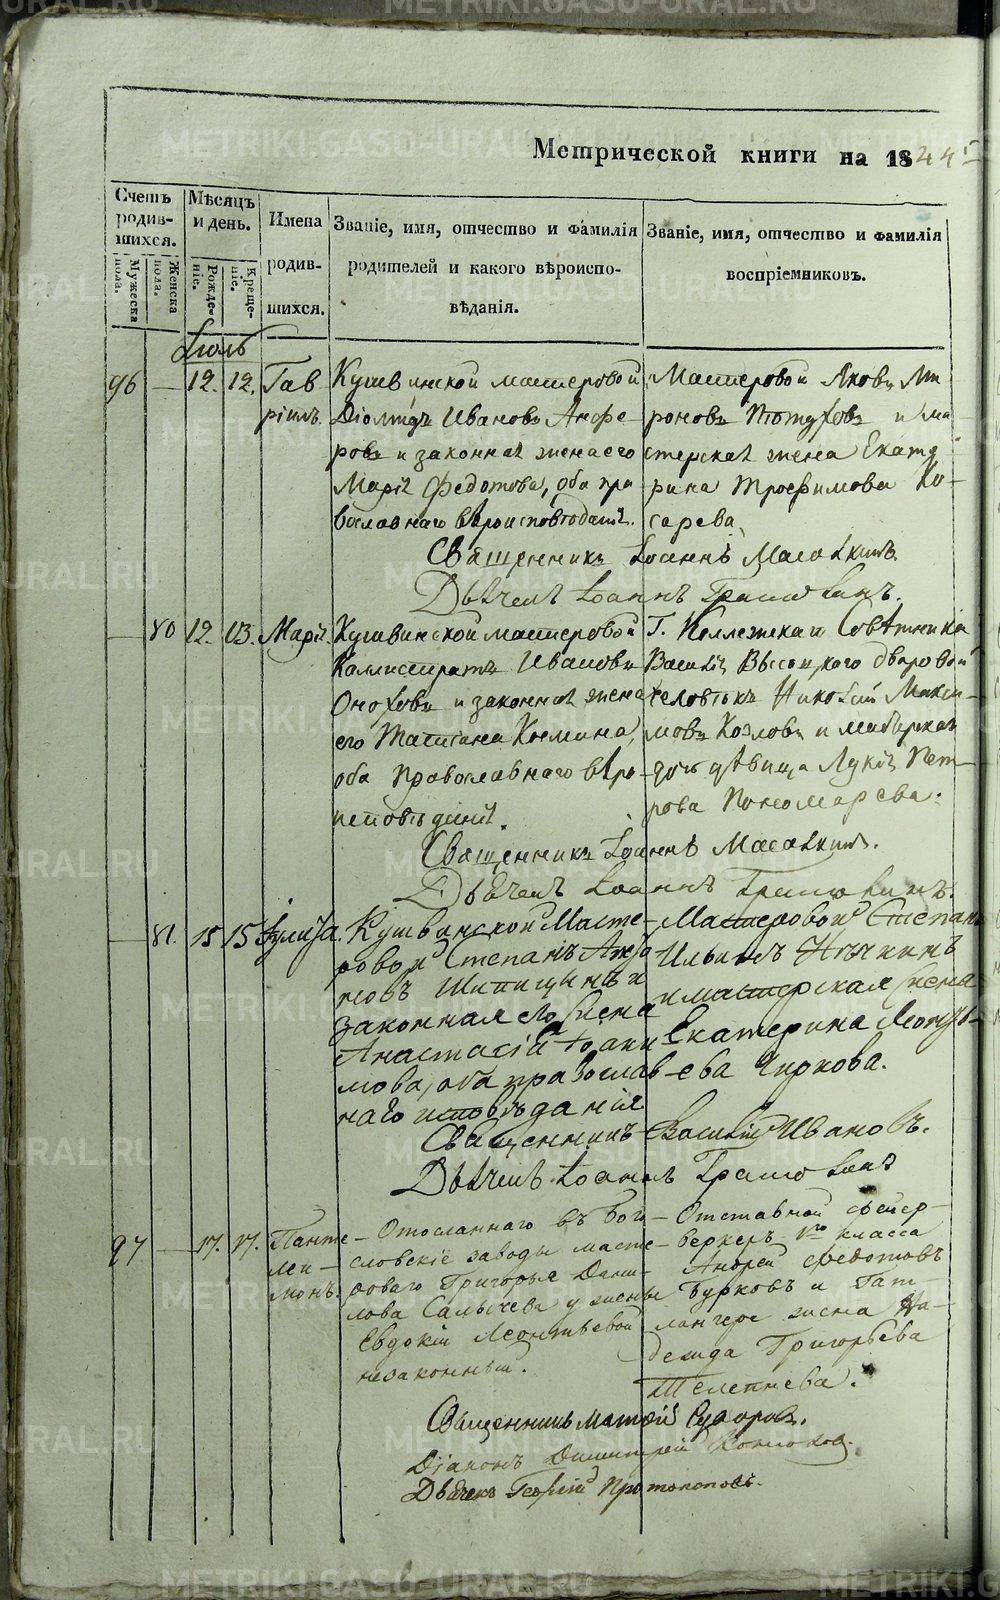 Метрической книги на 18
Счетъ родив- шихся.
Мужеска пола.
Женска пола.
Мѣсяцъ и день.
Рожде- ніе.
Креще- ніе.
Имена родив- шихся.
Званіе, имя, отчество и фамилія
родителей и какого вѣроиспо-
вѣданія.
Званіе, имя, отчество и фамилія
воспріемниковъ.
Іюль
96 — 12. 12. Гав
ріилъ.
Кушвинской мастеровой
Діомидъ Ивановъ Анфе
ровъ и законная жена его
Марія Федотова, оба пра
вославнаго вѣроисповѣданія.
Мастеровой Яковъ Ми
роновъ Пѣтуховъ и ма
стерская жена Екате
рина Трофимова Ко-
сарева
Священникъ Іоаннъ
Дьячекъ Іоаннъ
— 80 12. 13. Марія.
Кушвинской мастеровой
Каллистратъ Ивановъ
Оноховъ и законная жена
его Татіана Космина,
оба Православнаго вѣро-
исповѣданія.
Г. Коллежскаго Совѣтника
Василія Высоцкаго дворовой
человѣкъ Николай Макси-
мовъ Козловъ и
дочь дѣвица Лукія Пет-
рова Пономарева.
Священникъ Іоаннъ
Дьячекъ Іоаннъ
— 81. 15 15 Іулита.
Кушвинской Масте-
ровой Степанъ
новъ Шипицынъ и
законная его жена
Анастасія Іоаки
мова, оба православ-
наго исповѣданія
Мастеровой Степанъ
Ильинъ
и мастерская жена
Екатерина Леонть-
ева Чиркова.
Священникъ Василій Ивановъ.
Дьячекъ Іоаннъ
97 — 17. 17. Панте-
леи-
монъ.
Отосланнаго въ Бого-
словскіе заводы масте-
роваго Григорья Дани-
лова Салычева у жены
Евдокіи Леонтьевой
незаконный.
Отставной фейер-
веркеръ 1го класса
Андрей Федотовъ
Бурковъ и
жена На-
дежда Григорьева
Телепнева.
Священникъ Матѳій Суворовъ.
Діаконъ Димитрій
Дьячекъ Георгій Протопоповъ.
METRIKI.GASO-URAL.RU